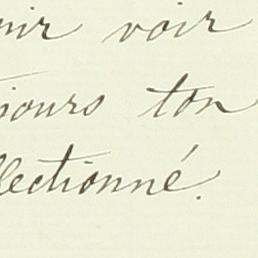 nir voir
jours ton
ffectionné.